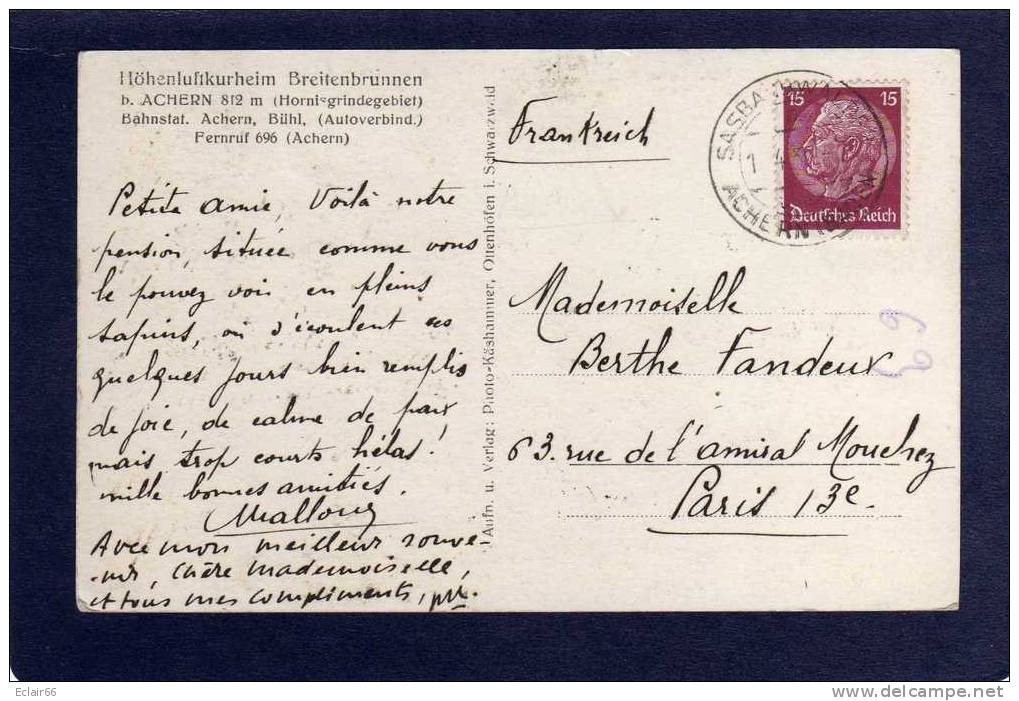 Höhenluftkurheim Breitenbrunnen
b. ACHERN 812 m (Hornisgrindegebiet)
Bahnstat. Achern, Bühl, (Autoverbind.)
Fernruf 696 (Achern)
Petite amie, Voilà notre
pension, située comme vous
le pouvez voir en pleins
sapins, où s'écoulent ces
quelques jours bien remplis
de joie, de calme de paix,
mais trop courts hélas!
mille bonnes amitiés.
Avec mon meilleur souve-
-nir, chère mademoiselle,
et tous mes compliments,
Aufn. u. Verlag: Photo-Käshammer, Ottenhöfen i. Schwarzwald
Frankreich
15 15
Deutsches Reich
ACHERN
Mademoiselle
Berthe Fandeux
63. rue de l'amiral Mouchez
Paris 13e.
69
Eclair66
http://www.delcampe.net